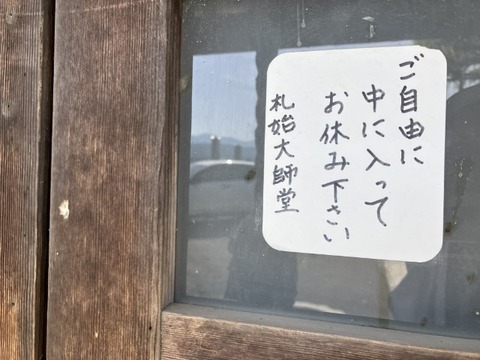 ご自由に
中に入って
お休み下さい
札始大師堂